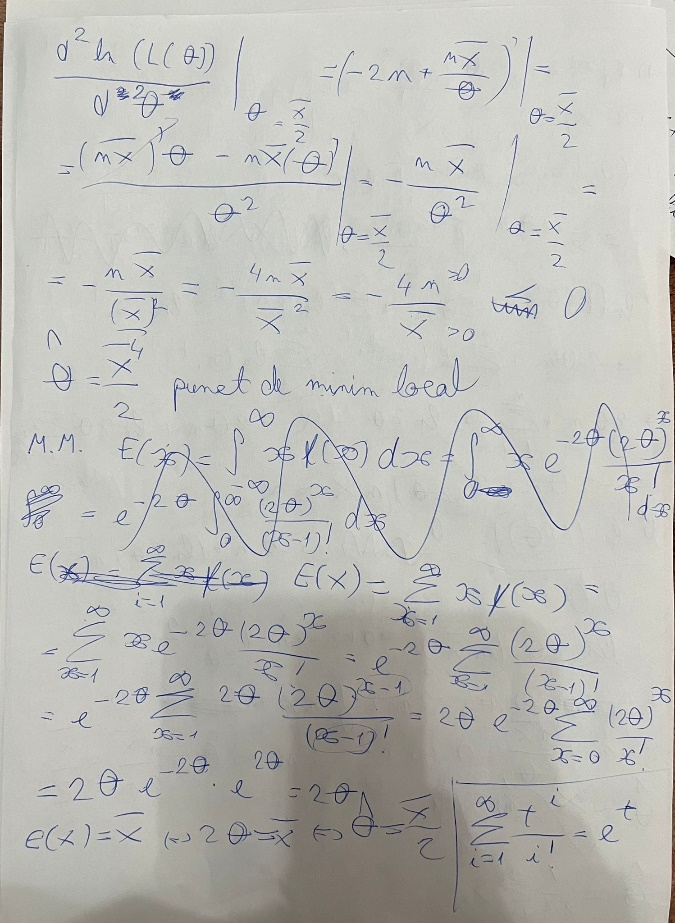 d² ln (L(θ)) / d²θ |θ = x̄/2 = (-2n + nx̄/θ)' |θ = x̄/2 =
= ((nx̄)'θ - nx̄(θ)') / θ² |θ = x̄/2 = - nx̄/θ² |θ = x̄/2 =
= - nx̄ / ((x̄)²/4) = - 4nx̄ / x̄² = - 4n / x̄ < 0
>0
>0
θ̂ = x̄/2 punct de minim local
M.M. E(x) = ∫ x f(x) dx = ∫₀^∞ x e^(-2θ) (2θ)^x / x! dx
= e^(-2θ) ∫₀^∞ (2θ)^x / (x-1)! dx
E(x) = Σ_{i=1}^∞ x f(x) E(X) = Σ_{x=1}^∞ x f(x) =
= Σ_{x=1}^∞ x e^(-2θ) (2θ)^x / x! = e^(-2θ) Σ_{x=1}^∞ (2θ)^x / (x-1)!
= e^(-2θ) Σ_{x=1}^∞ 2θ (2θ)^(x-1) / (x-1)! = 2θ e^(-2θ) Σ_{x=0}^∞ (2θ)^x / x!
= 2θ e^(-2θ) · e^(2θ) = 2θ
E(x) = x̄ ⇔ 2θ = x̄ ⇔ θ̂ = x̄/2
Σ_{i=1}^∞ t^i / i! = e^t